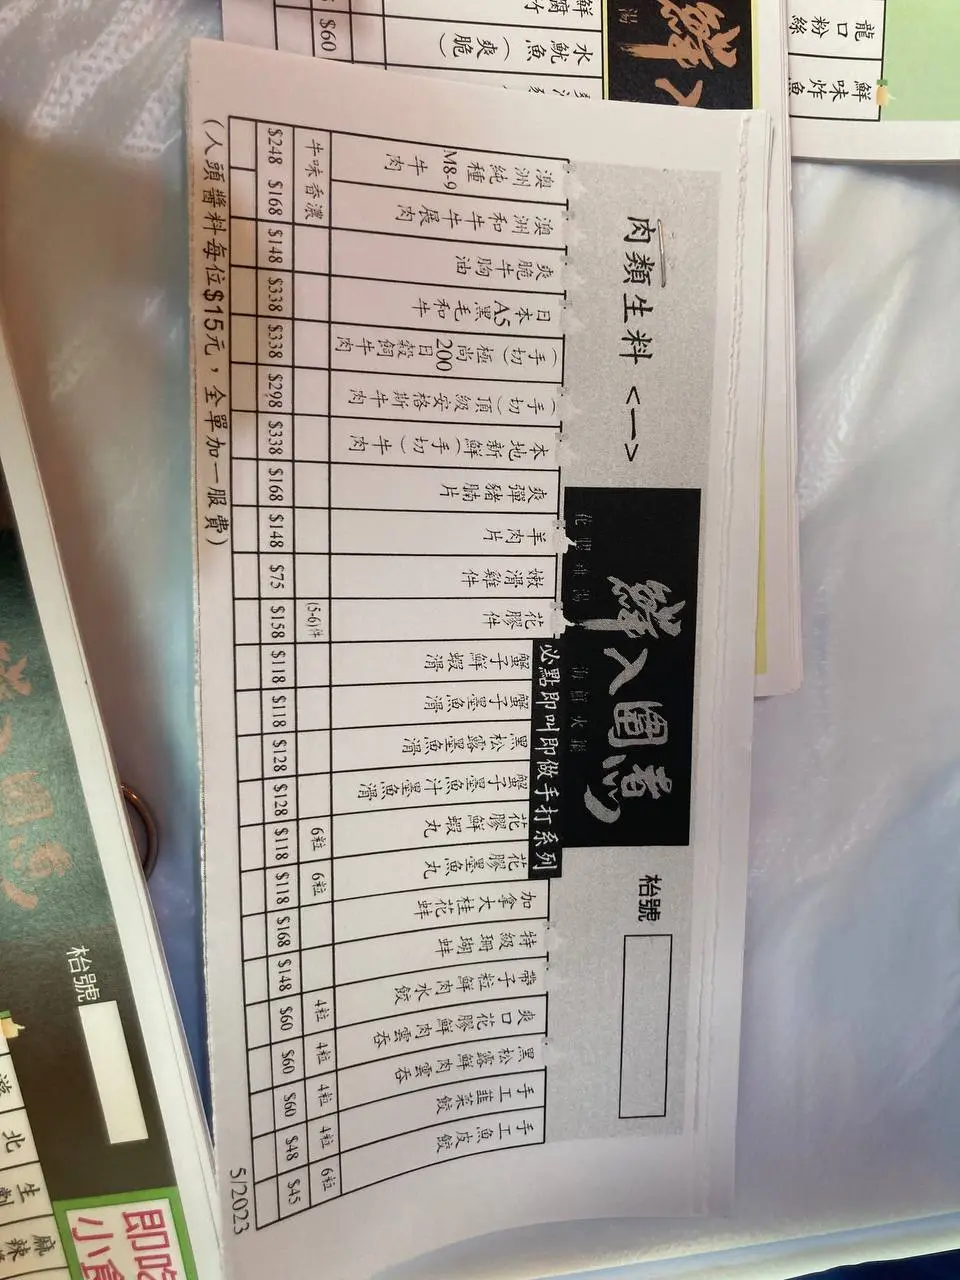 肉類生料 <一>
鮮入圍煮
枱號
必點即叫即做手打系列
澳洲純種M8-9牛肉 牛味香濃 $248
澳洲和牛牛展肉 $168
爽脆牛胸油 $148
日本A5黑毛和牛 $338
(手切)極尚200日穀飼牛肉 $338
(手切)頂級安格斯牛肉 $298
本地新鮮(手切)牛肉 $338
爽彈豬腩片 $168
羊肉片 $148
嫩滑雞件 $75
花膠件 (5-6)件 $158
蟹子鮮蝦滑 $118
蟹子墨魚滑 $118
黑松露墨魚滑 $128
蟹子墨魚汁墨魚滑 $128
花膠鮮蝦丸 6粒 $118
花膠墨魚丸 6粒 $118
加拿大桂花蚌 $168
特級珊瑚蚌 $148
帶子粒鮮肉水餃 4粒 $60
爽口花膠鮮肉雲吞 4粒 $60
黑松露鮮肉雲吞 4粒 $60
手工韮菜餃 4粒 $48
手工魚皮餃 6粒 $45
(人頭醬料每位$15元，全單加一服費)
5/2023
龍口粉絲
鮮味炸魚
水魷魚(爽脆)
$60
枱號
即吃